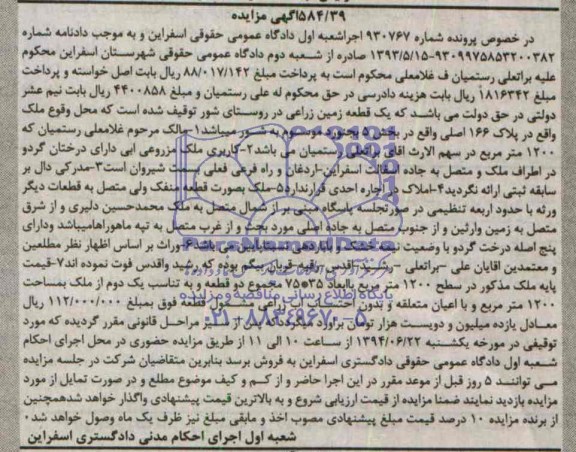 ۵۸۴/۳۹آگهی مزایده
در خصوص پرونده شماره ۹۳۰۷۶۷ اجراشعبه اول دادگاه عمومی حقوقی اسفراین و به موجب دادنامه شماره
۹۳۰۹۹۷۵۸۵۳۲۰۰۳۸۲-۱۳۹۳/۵/۱۵ صادره از شعبه دوم دادگاه عمومی حقوقی شهرستان اسفراین محکوم
علیه براتعلی رستمیان ف غلامعلی محکوم است به پرداخت مبلغ ۸۸/۰۱۷/۱۴۲ ریال بابت اصل خواسته و پرداخت
مبلغ ۱۸۱۶۳۴۲ ریال بابت هزینه دادرسی در حق محکوم له علی رستمیان و مبلغ ۴۴۰۰۸۵۸ ریال بابت نیم عشر
دولتی در حق دولت می باشد که یک قطعه زمین زراعی در روستای شور توقیف شده است که محل وقوع ملک
واقع در پلاک ۱۶۶ اصلی واقع در بخش ۵ بجنورد موسوم به شور میباشد۱-مالک مرحوم غلامعلی رستمیان که
۱۲۰۰ متر مربع در سهم الارث اقای براتعلی رستمیان می باشد۲-کاربری ملک مزروعی ابی دارای درختان گردو
در اطراف ملک و متصل به جاده اسفالت اسفراین-اردغان و راه فرعی فعلی بسمت شیروان است۳-مدرکی دال بر
سابقه ثبتی ارائه نگردید۴-املاک در اجاره احدی قرارندارد۵-ملک بصورت قطعه منفک ولی متصل به قطعات دیگر
ورثه با حدود اربعه تنظیمی در صورتجلسه پاسگاه مبنی بر از شمال متصل به ملک محمدحسین دلیری و از شرق
متصل به زمین وارثین و از جنوب متصل به جاده اصلی مورد بحث و از غرب متصل به تپه ماهوراهامیباشد ودارای
پنج اصله درخت گردو با وضعیت ۶-وراث بر اساس اظهار نظر مطلعین
و معتمدین اقایان علی -براتعلی رقیه-قربان بیگو بوده که رشید واقدس فوت نموده اند۷-قیمت
پایه ملک مذکور در سطح ۱۲۰۰ متر مربع باابعاد ۳۵*۷۵ مجموع دو قطعه و به تناسب یک دوم از ملک بمساحت
۱۲۰۰ متر مربع و با اعیان متعلقه و بدون احتساب اب زراعی مشمول قطعه فوق بمبلغ ۱۱۲/۰۰۰/۰۰۰ ریال
معادل یازده میلیون و دویست هزار تومان براورد میگردد که پس از سیر مراحل قانونی مقرر گردیده که مورد
توقیفی در مورخه یکشنبه ۱۳۹۴/۰۶/۲۲ از ساعت ۱۰ الی ۱۱ از طریق مزایده حضوری در محل اجرای احکام
شعبه اول دادگاه عمومی حقوقی دادگستری اسفراین به فروش برسد بنابرین متقاضیان شرکت در جلسه مزایده
می توانند ۵ روز قبل از موعد مقرر در این اجرا حاضر و از کم و کیف موضوع مطلع و در صورت تمایل از مورد
مزایده بازدید نمایند ضمنا مزایده از قیمت ارزیابی شروع و به بالاترین قیمت پیشنهادی واگذار خواهد شدهمچنین
از برنده مزایده ۱۰ درصد قیمت مبلغ پیشنهادی مصوب اخذ و مابقی مبلغ نیز ظرف یک ماه وصول خواهد شد۰
شعبه اول اجرای احکام مدنی دادگستری اسفراین
پایگاه اطلاع رسانی مناقصه و مزایده
۰۲۱-۸۸۳۴۹۶۷۰-۵